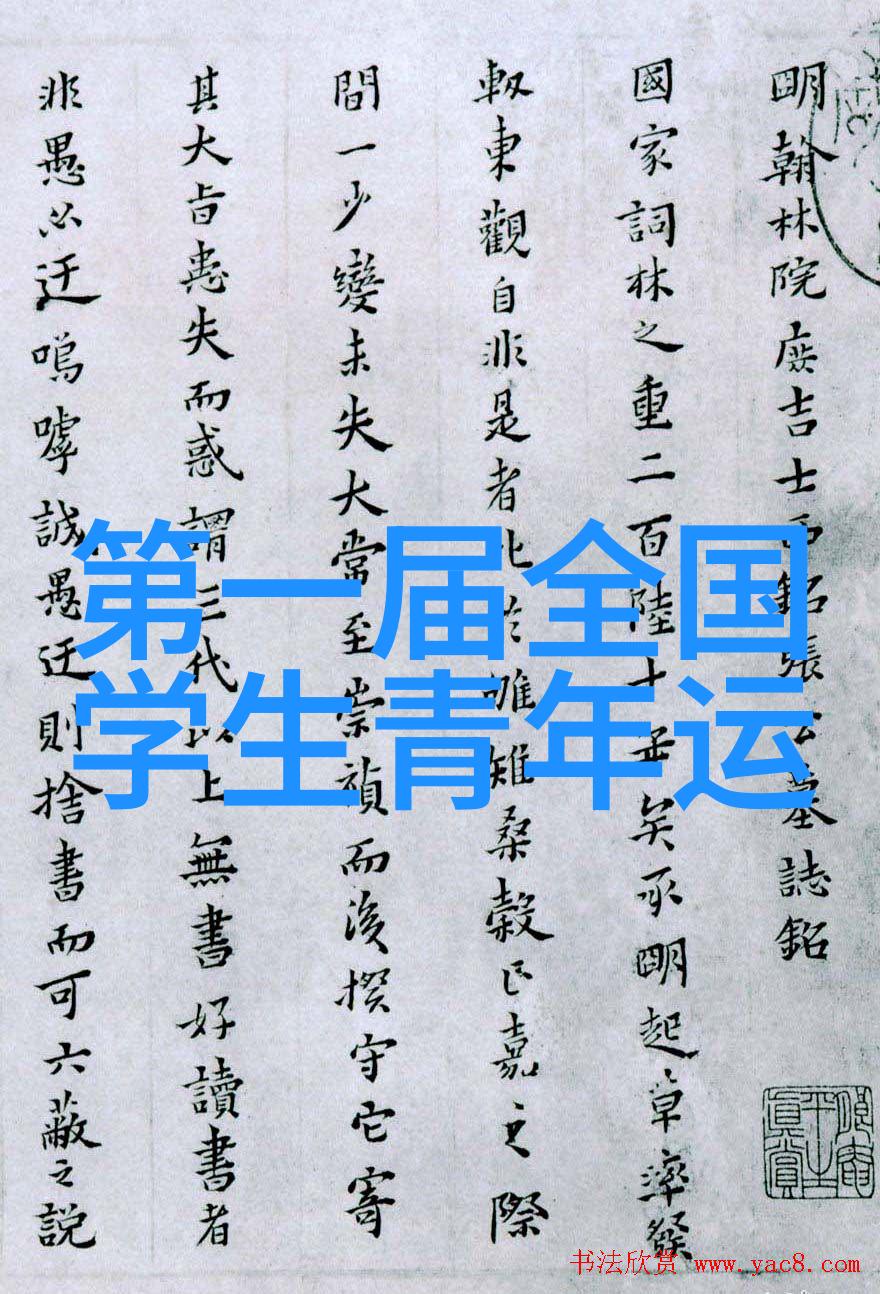 明翰林院庶吉士西銘張公墓誌銘
國家詞林之重二百陸十年矣承明起草塗發
軔東觀自非是者比於雊雉桑穀正嘉之際
間一少變未失大常至崇禎而後揆守它寄
其大旨患失而惑謂三代以上無書好讀書者
非愚必迂嗚嘑誠愚迂則捨書而可六蔽之説
第一届全国
学生青年运
书法欣赏 www.yac8.com